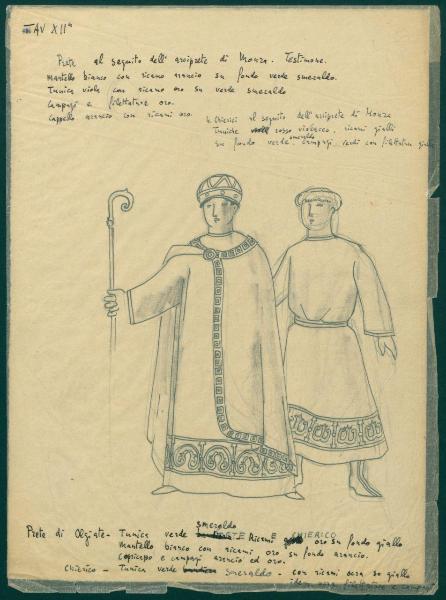 TAV XIIª
Prete al seguito dell'arciprete di Monza. Testimone.
Mantello bianco con ricamo arancio su fondo verde smeraldo.
Tunica viola con ricamo oro su verde smeraldo
Campagi e filettature oro.
Cappello arancio con ricami oro.
4 Chierici al seguito dell'arciprete di Monza
Tuniche rosso violaceo, ricami gialli
su fondo verde smeraldo campagi verdi con filettature gialle
PRETE E CHIERICO
Prete di Olgiate - Tunica verde smeraldo Ricami oro su fondo giallo
mantello bianco con ricami oro su fondo arancio.
copricapo e campagi arancio ed oro.
Chierico - Tunica verde smeraldo - con ricami ocra su giallo
filettature e campagi